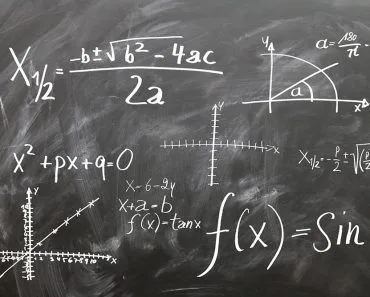 X1/2 = -b ± √b² - 4ac
2a
y
a = 180
π
a
x
y
x
x² + px + q = 0
X1/2 = - p/2 ± √(p
2
x - 6 - 2y
x + a = b
f(x) = tanx
y
x
f(x) = Sin